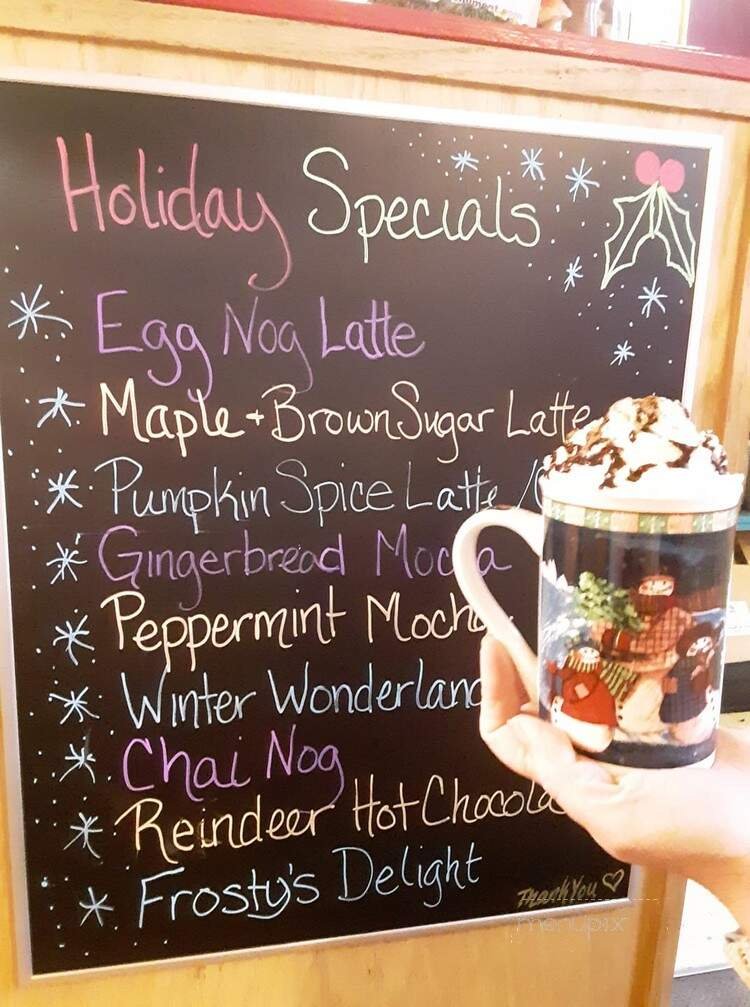 Holiday Specials
Egg Nog Latte
Maple + Brown Sugar Latte
Pumpkin Spice Latte /
Gingerbread Mocha
Peppermint Mocha
Winter Wonderland
Chai Nog
Reindeer Hot Chocola
Frosty's Delight
Thank You ♡
menupix